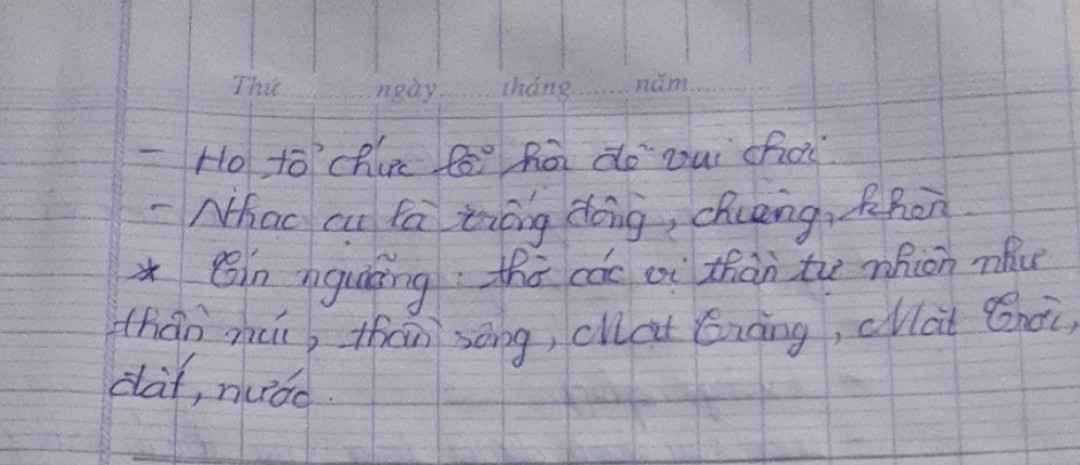 Thứ ngày tháng năm
- Họ tổ chức lễ hội để vui chơi
- Nhạc cụ là trống đồng, chuông, khèn.
* Tín ngưỡng: thờ các vị thần tự nhiên như
thần núi, thần sông, Mặt Trăng, Mặt Trời,
đất, nước.